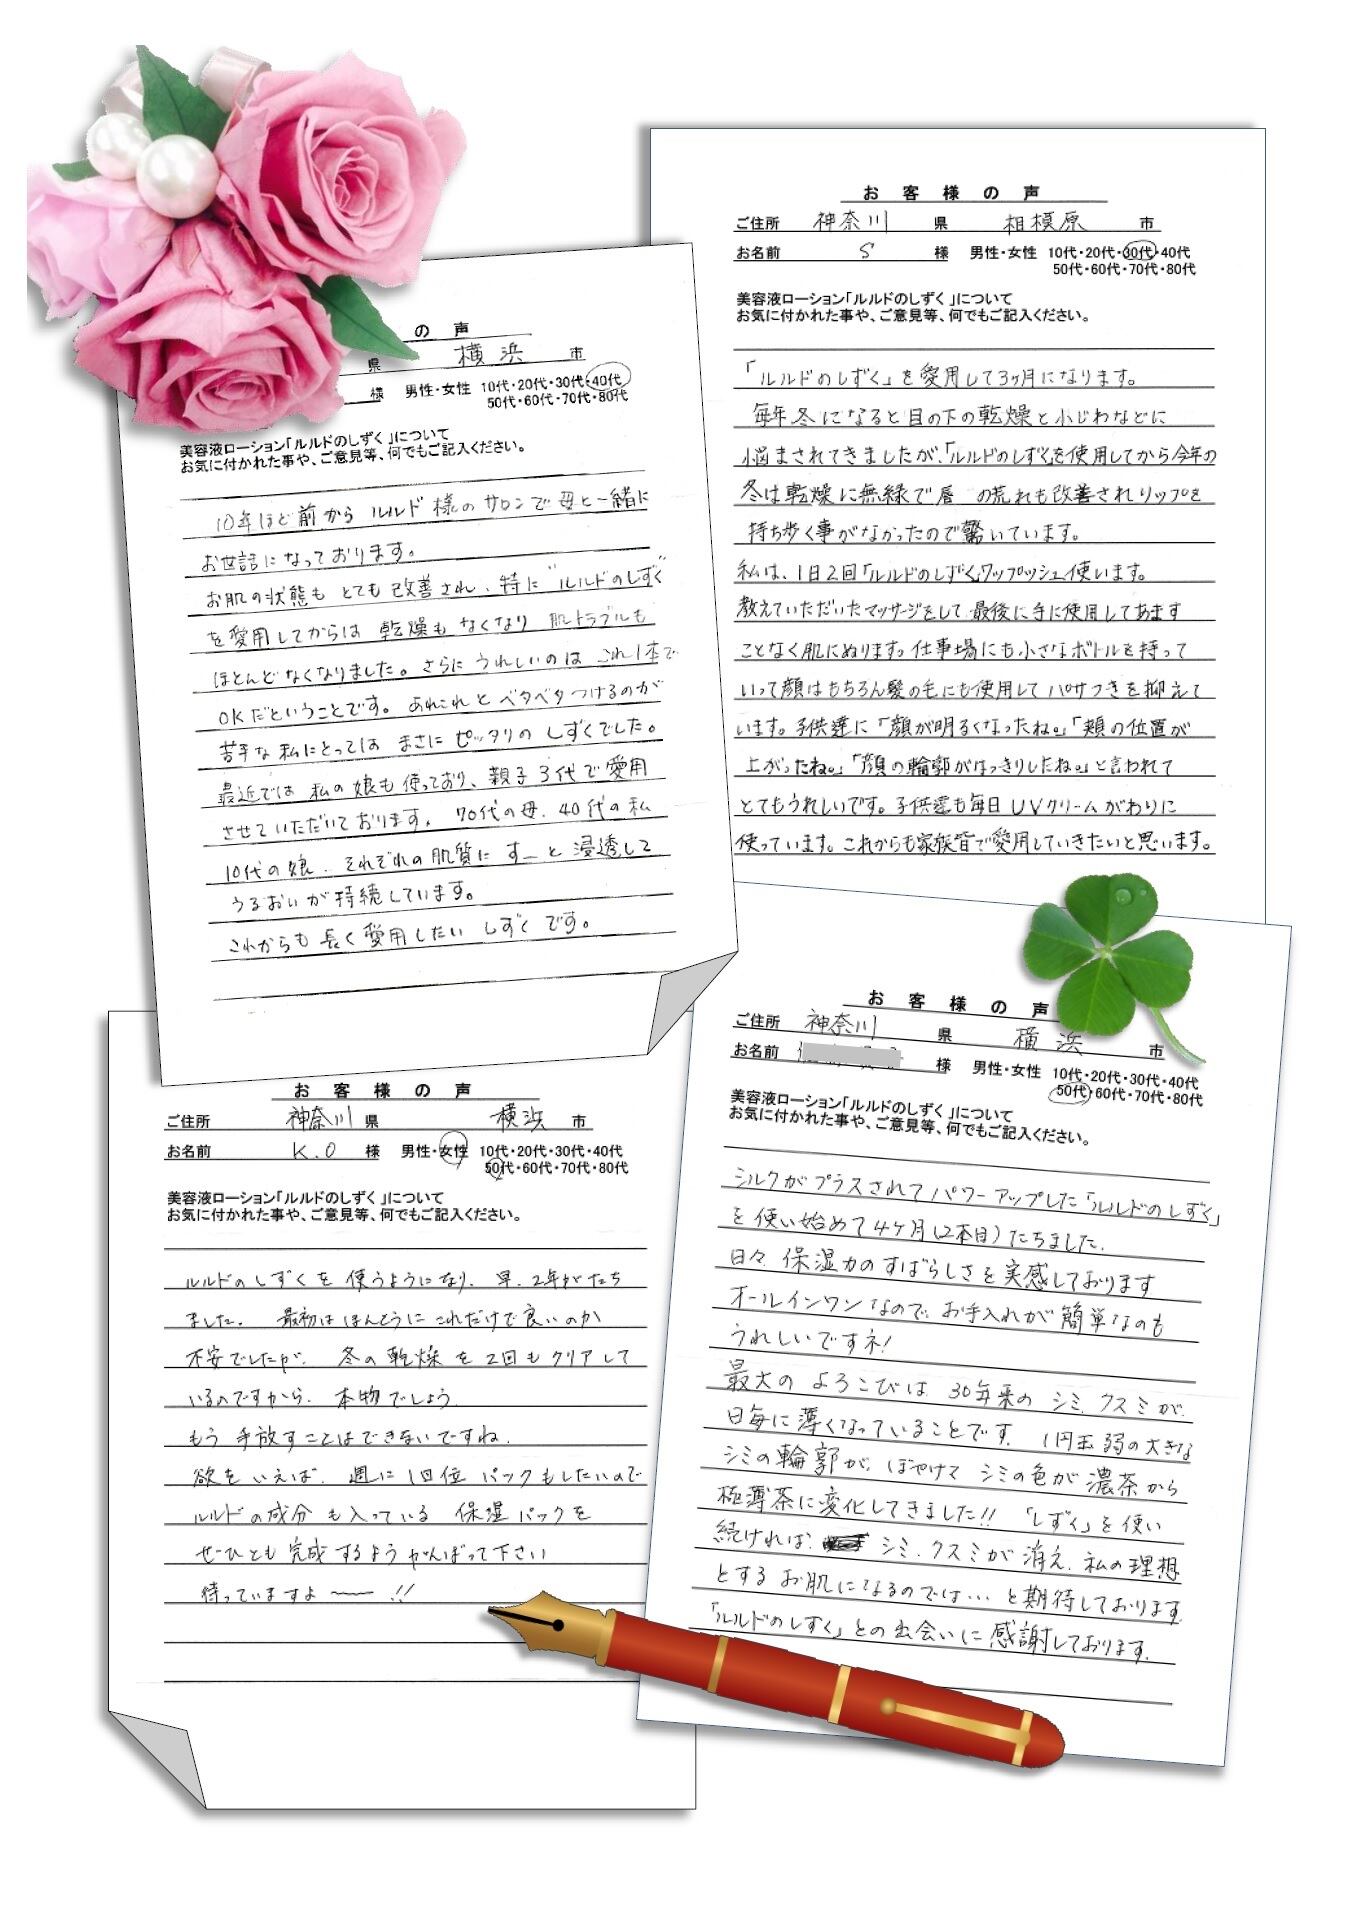 の 声
県 横浜 市
様 男性・女性 10代・20代・30代・40代
50代・60代・70代・80代
美容液ローション「ルルドのしずく」について
お気に付かれた事や、ご意見等、何でもご記入ください。
10年ほど前から ルルド様のサロンで母と一緒に
お世話になっております。
お肌の状態も とても改善され、特に"ルルドのしずく"
を愛用してからは 乾燥もなくなり 肌トラブルも
ほとんどなくなりました。さらにうれしいのは これ1本で
OKだということです。あれこれとベタベタつけるのが
苦手な私にとっては まさにピッタリの しずくでした。
最近では 私の娘も使っており、親子3代で愛用
させていただいております。70代の母、40代の私
10代の娘、それぞれの肌質に すーと浸透して
うるおいが持続しています。
これからも長く愛用したい しずくです。
お 客 様 の 声
ご住所 神奈川 県 相模原 市
お名前 S 様 男性・女性 10代・20代・30代・40代
50代・60代・70代・80代
美容液ローション「ルルドのしずく」について
お気に付かれた事や、ご意見等、何でもご記入ください。
「ルルドのしずく」を愛用して3ヶ月になります。
毎年冬になると目の下の乾燥と小じわなどに
悩まされてきましたが、「ルルドのしずく」を使用してから今年の
冬は乾燥に無縁で唇 の荒れも改善されリップを
持ち歩く事がなかったので驚いています。
私は、1日2回「ルルドのしずく」ワップッシュ使います。
教えていただいたマッサージをして最後に手に使用してあます
ことなく肌にぬります。仕事場にも小さなボトルを持って
いって顔はもちろん髪の毛にも使用してパサつきを抑えて
います。子供達に「顔が明るくなったね。」「頬の位置が
上がったね。」「顔の輪郭がはっきりしたね。」と言われて
とてもうれしいです。子供達も毎日UVクリームがわりに
使っています。これからも家族皆で愛用していきたいと思います。
お 客 様 の 声
ご住所 神奈川 県 横浜 市
お名前 K.O 様 男性・女性 10代・20代・30代・40代
50代・60代・70代・80代
美容液ローション「ルルドのしずく」について
お気に付かれた事や、ご意見等、何でもご記入ください。
ルルドのしずくを使うようになり、早、2年がたち
ました。 最初はほんとうにこれだけで良いのか
不安でしたが、冬の乾燥を2回もクリアして
いるのですから、本物でしょう。
もう手放すことはできないですね。
欲をいえば、週に1回位パックもしたいので
ルルドの成分も入っている 保湿パックを
ぜひとも完成するようがんばって下さい
待っていますよ〜〜!!
お 客 様 の 声
ご住所 神奈川 県 横浜 市
お名前 様 男性・女性 10代・20代・30代・40代
50代・60代・70代・80代
美容液ローション「ルルドのしずく」について
お気に付かれた事や、ご意見等、何でもご記入ください。
シルクがプラスされてパワーアップした「ルルドのしずく」
を使い始めて4ヶ月(2本目)たちました。
日々、保湿力のすばらしさを実感しております
オールインワンなので、お手入れが簡単なのも
うれしいですネ!
最大のよろこびは、30年来のシミ、クスミが、
日毎に薄くなっていることです。1円玉弱の大きな
シミの輪郭が、ぼやけてシミの色が濃茶から
極薄茶に変化してきました!!「しずく」を使い
続ければ、シミ、クスミが消え、私の理想
とするお肌になるのでは…と期待しております
「ルルドのしずく」との出会いに感謝しております。